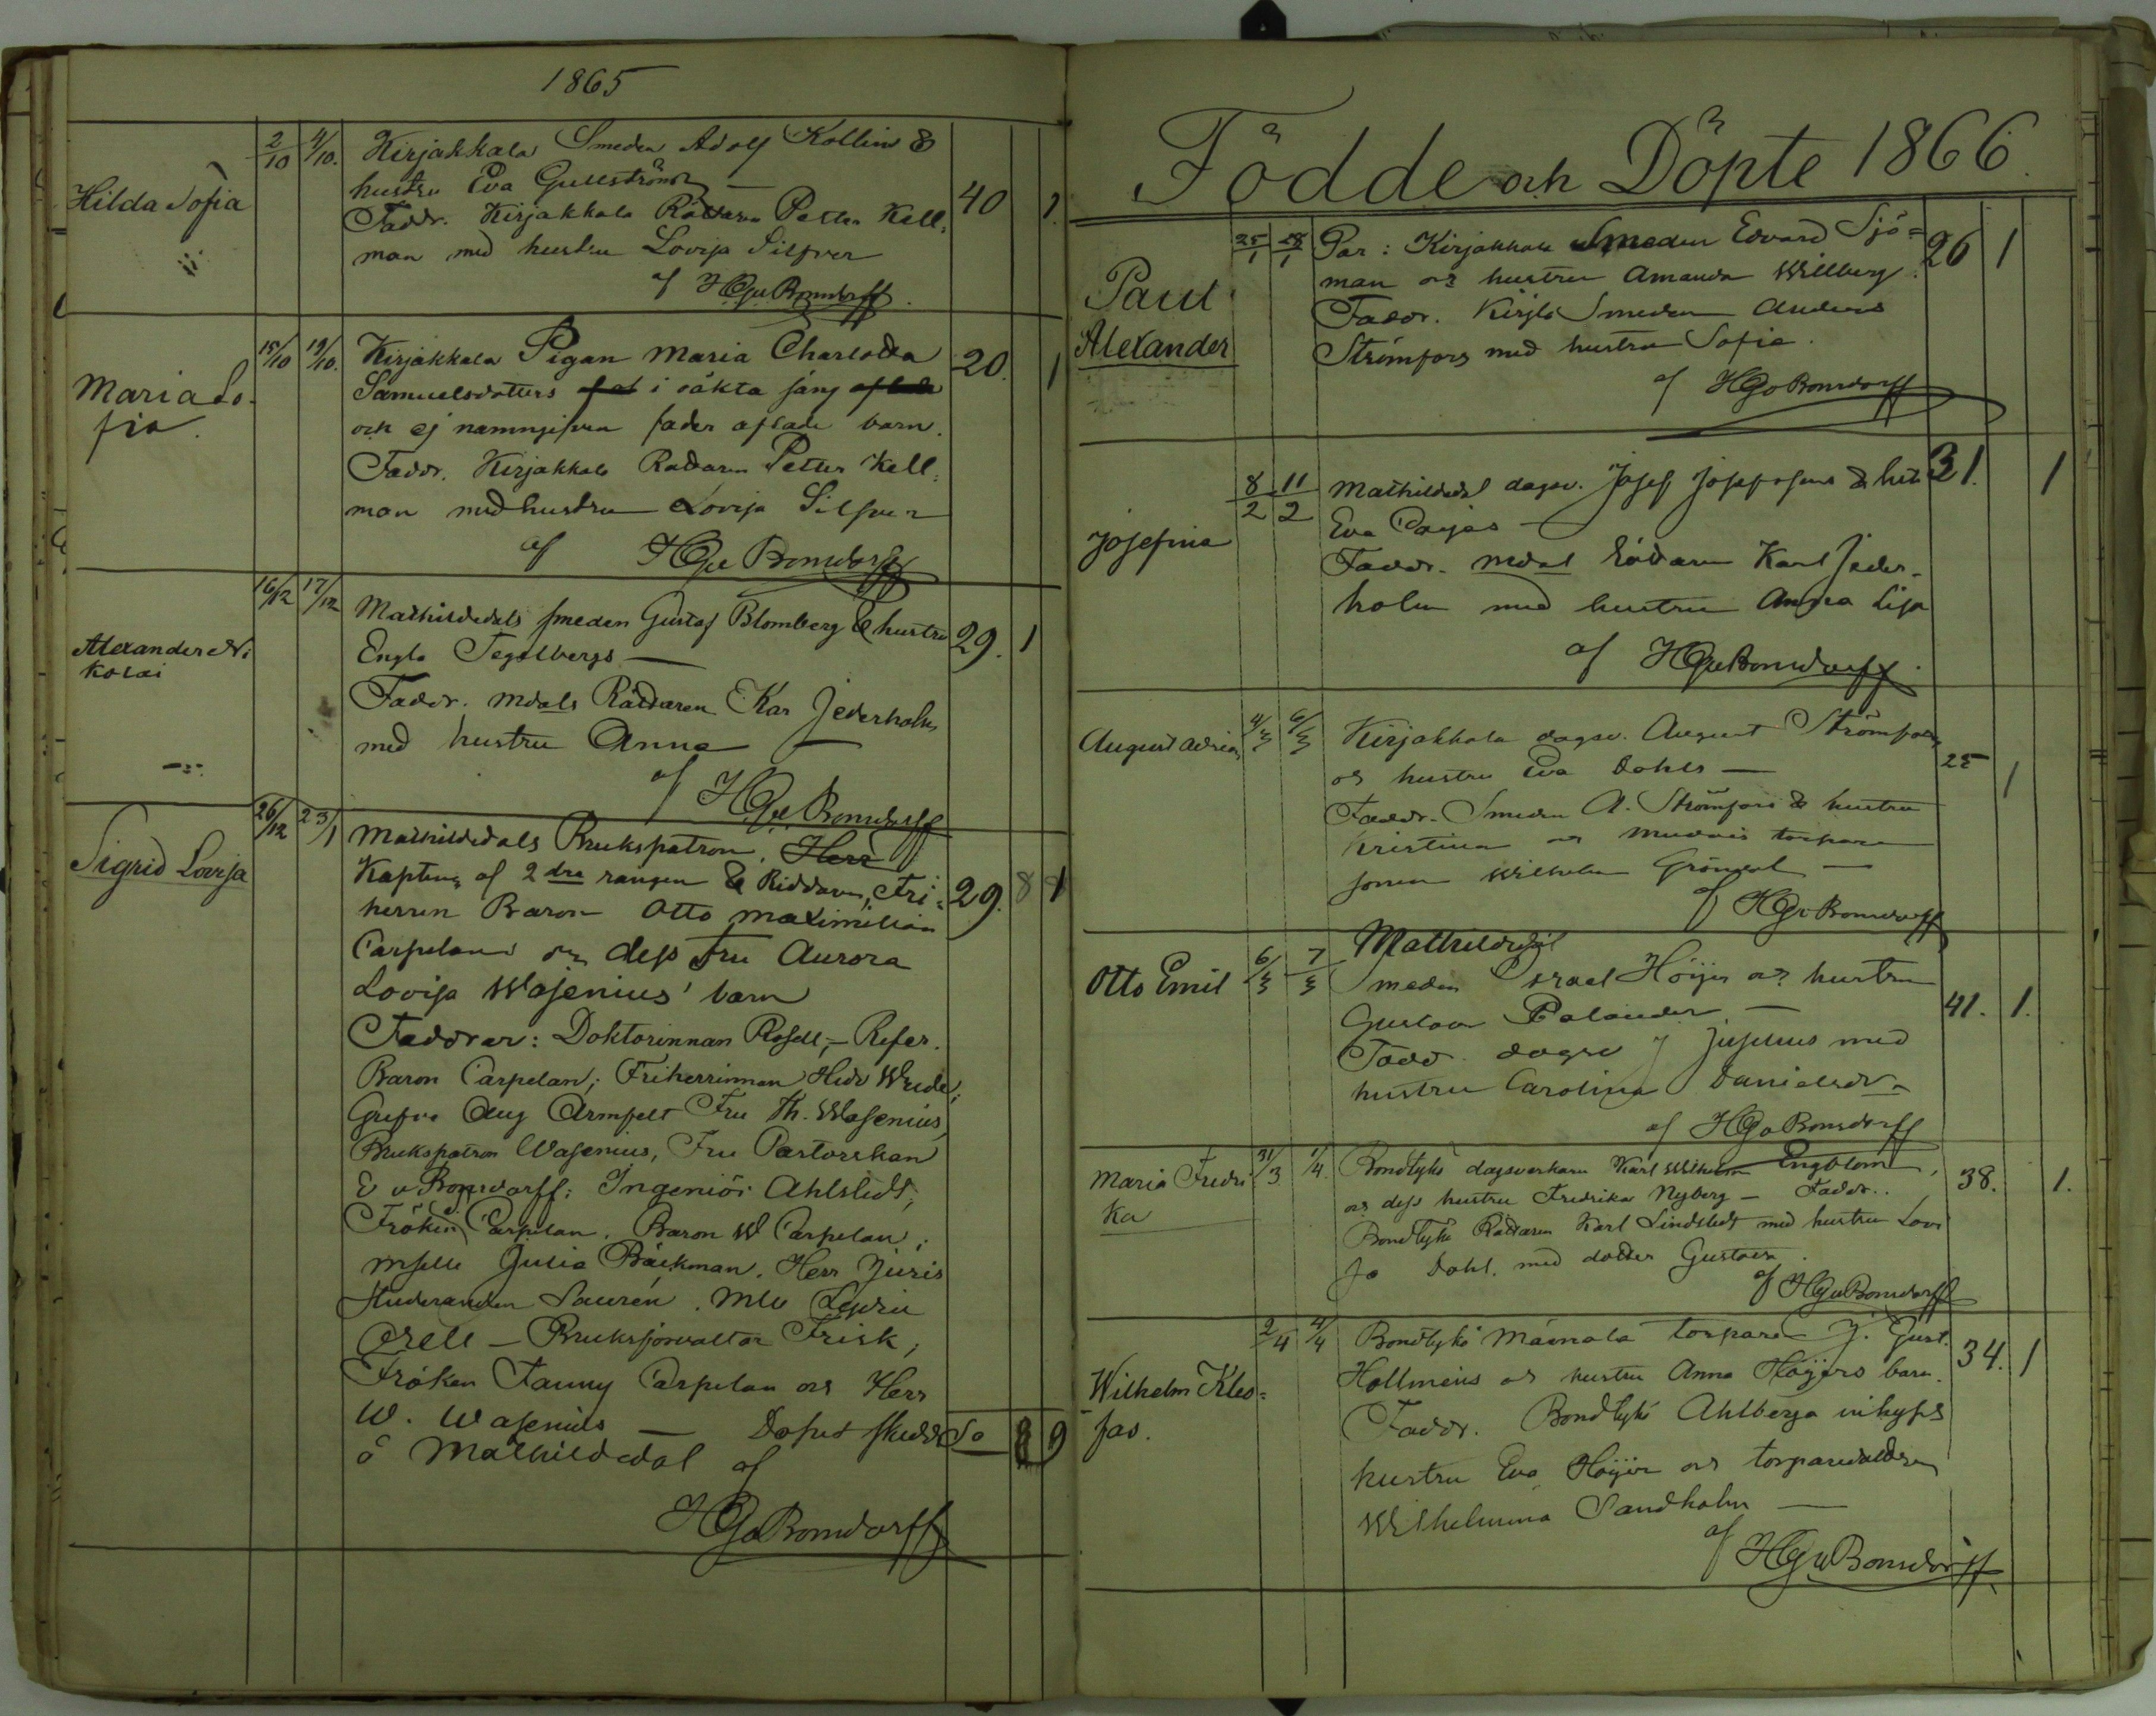 1865
Hilda Sofia
2/10 4/10. Kirjakkala Smeden Adolf Kollin &
hustru Eva Gullström
Faddr. Kirjakkala Rättaren Petter Kell-
man med hustru Lovisa Silfver
af HGvBonsdorff.
40 1.
Maria So-
fia.
15/10 19/10. Kirjakkala Pigan Maria Charlotta
Samuelsdotters i oäkta säng
och ej namngifven fader aflade barn.
Faddr. Kirjakkala Rättaren Petter Kell-
man med hustru Lovisa Silfver
af HGvBonsdorff
20. 1
Alexander Ni
kolai
16/12 17/12 Mathildedals smeden Gustaf Blomberg & hustru
Engla Tegelbergs —
Faddr. Mdals Rättaren Karl Jederholm
med hustru Anna —
af HGvBonsdorff
29. 1
Sigrid Lovisa
26/12 23/1 Mathildedals Brukspatron, Herr
Kapten af 2dra rangen & Riddaren, Fri-
herren Baron Otto Maximilian
Carpelan och dess Fru Aurora
Lovisa Wasenius' barn
Faddrar: Doktorinnan Rosell, – Refer.
Baron Carpelan; Friherrinnan Hedv Wrede;
Grefve Aug Armfelt Fru Th. Wasenius,
Brukspatron Wasenius, Fru Pastorskan
E v Bonsdorff; Ingeniör Ahlstedt;
Fröken Carpelan. Baron W Carpelan;
Mselle Julia Bäckman. Herr Juris
Studeranden Saurén. Mlle
Orell – Bruksförvaltar Frisk;
Fröken Fanny Carpelan och Herr
W. Wasenius — Dopet skedde
å Mathildedal af
HGvBonsdorff
29. 8 1
So 8 9
Födde och Döpte 1866.
Paul
Alexander
25/1 28/1 Par: Kirjakkala Smeden Edvard Sjö-
man och hustru Amanda Willberg.
Faddr. Kirjla Smeden Anders
Strömfors med hustru Sofia.
af HGvBonsdorff
26 1
Josefina
8/2 11/2 Mathildedal dagsv. Josef Josefssons & hust
Eva
Faddr. Mdal Rättaren Karl Jeder-
holm med hustru Anna Lisa
af HGvBonsdorff.
31. 1
August Adrian
4/3 6/3 Kirjakkala dagsv. August Strömfors
och hustru Eva Dahls —
Faddr. Smeden A. Strömfors & hustru
Kristina och torpare
sonen Wilhelm Gröndal —
af HGvBonsdorff
25 1
Otto Emil
6/3 7/3 Mathildedal
Smeden Israel Höijer och hustru
Gustava Palander —
Fadd. dagsv J Juselius med
hustru Carolina Danielsdr
af HGvBonsdorff
41. 1.
Maria Fredri
ka
31/3 1/4. Bondbyks dagsverkaren Karl Wilhelm Engblom,
och dess hustru Fredrika Nyberg – Faddr.
Bondbyks Rättaren Karl Lindstedt med hustru Lovi
sa Dahl. med dotter Gustava.
af HGvBonsdorff
38. 1.
Wilhelm Kleo-
fas.
2/4 4/4 Bondbyks Mäenala torparen J. Gust.
Hollmens och hustru Anna Höijers barn.
Faddr. Bondbyks Ahlberga inhyses
hustru Eva Höijer och torparedottern
Wilhelmina Sandholm —
af HGvBonsdorff
34. 1